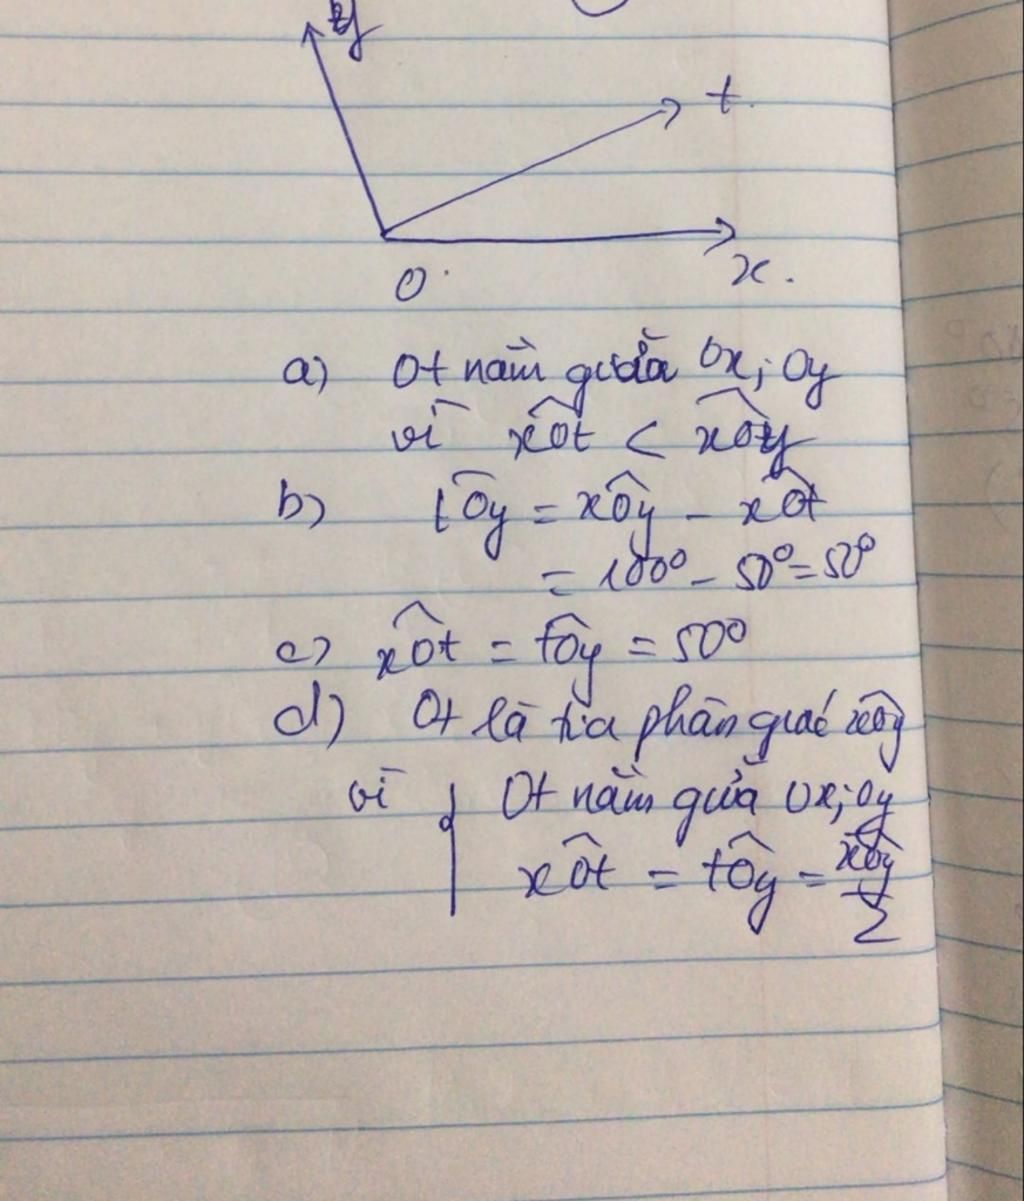 y
t.
O
x.
a) Ot nằm giữa Ox; Oy
vì xÔt < xÔy
b) tÔy = xÔy - xÔt
= 100° - 50° = 50°
c) xÔt = tÔy = 50°
d) Ot là tia phân giác xÔy
vì { Ot nằm giữa Ox; Oy
xÔt = tÔy = xÔy/2